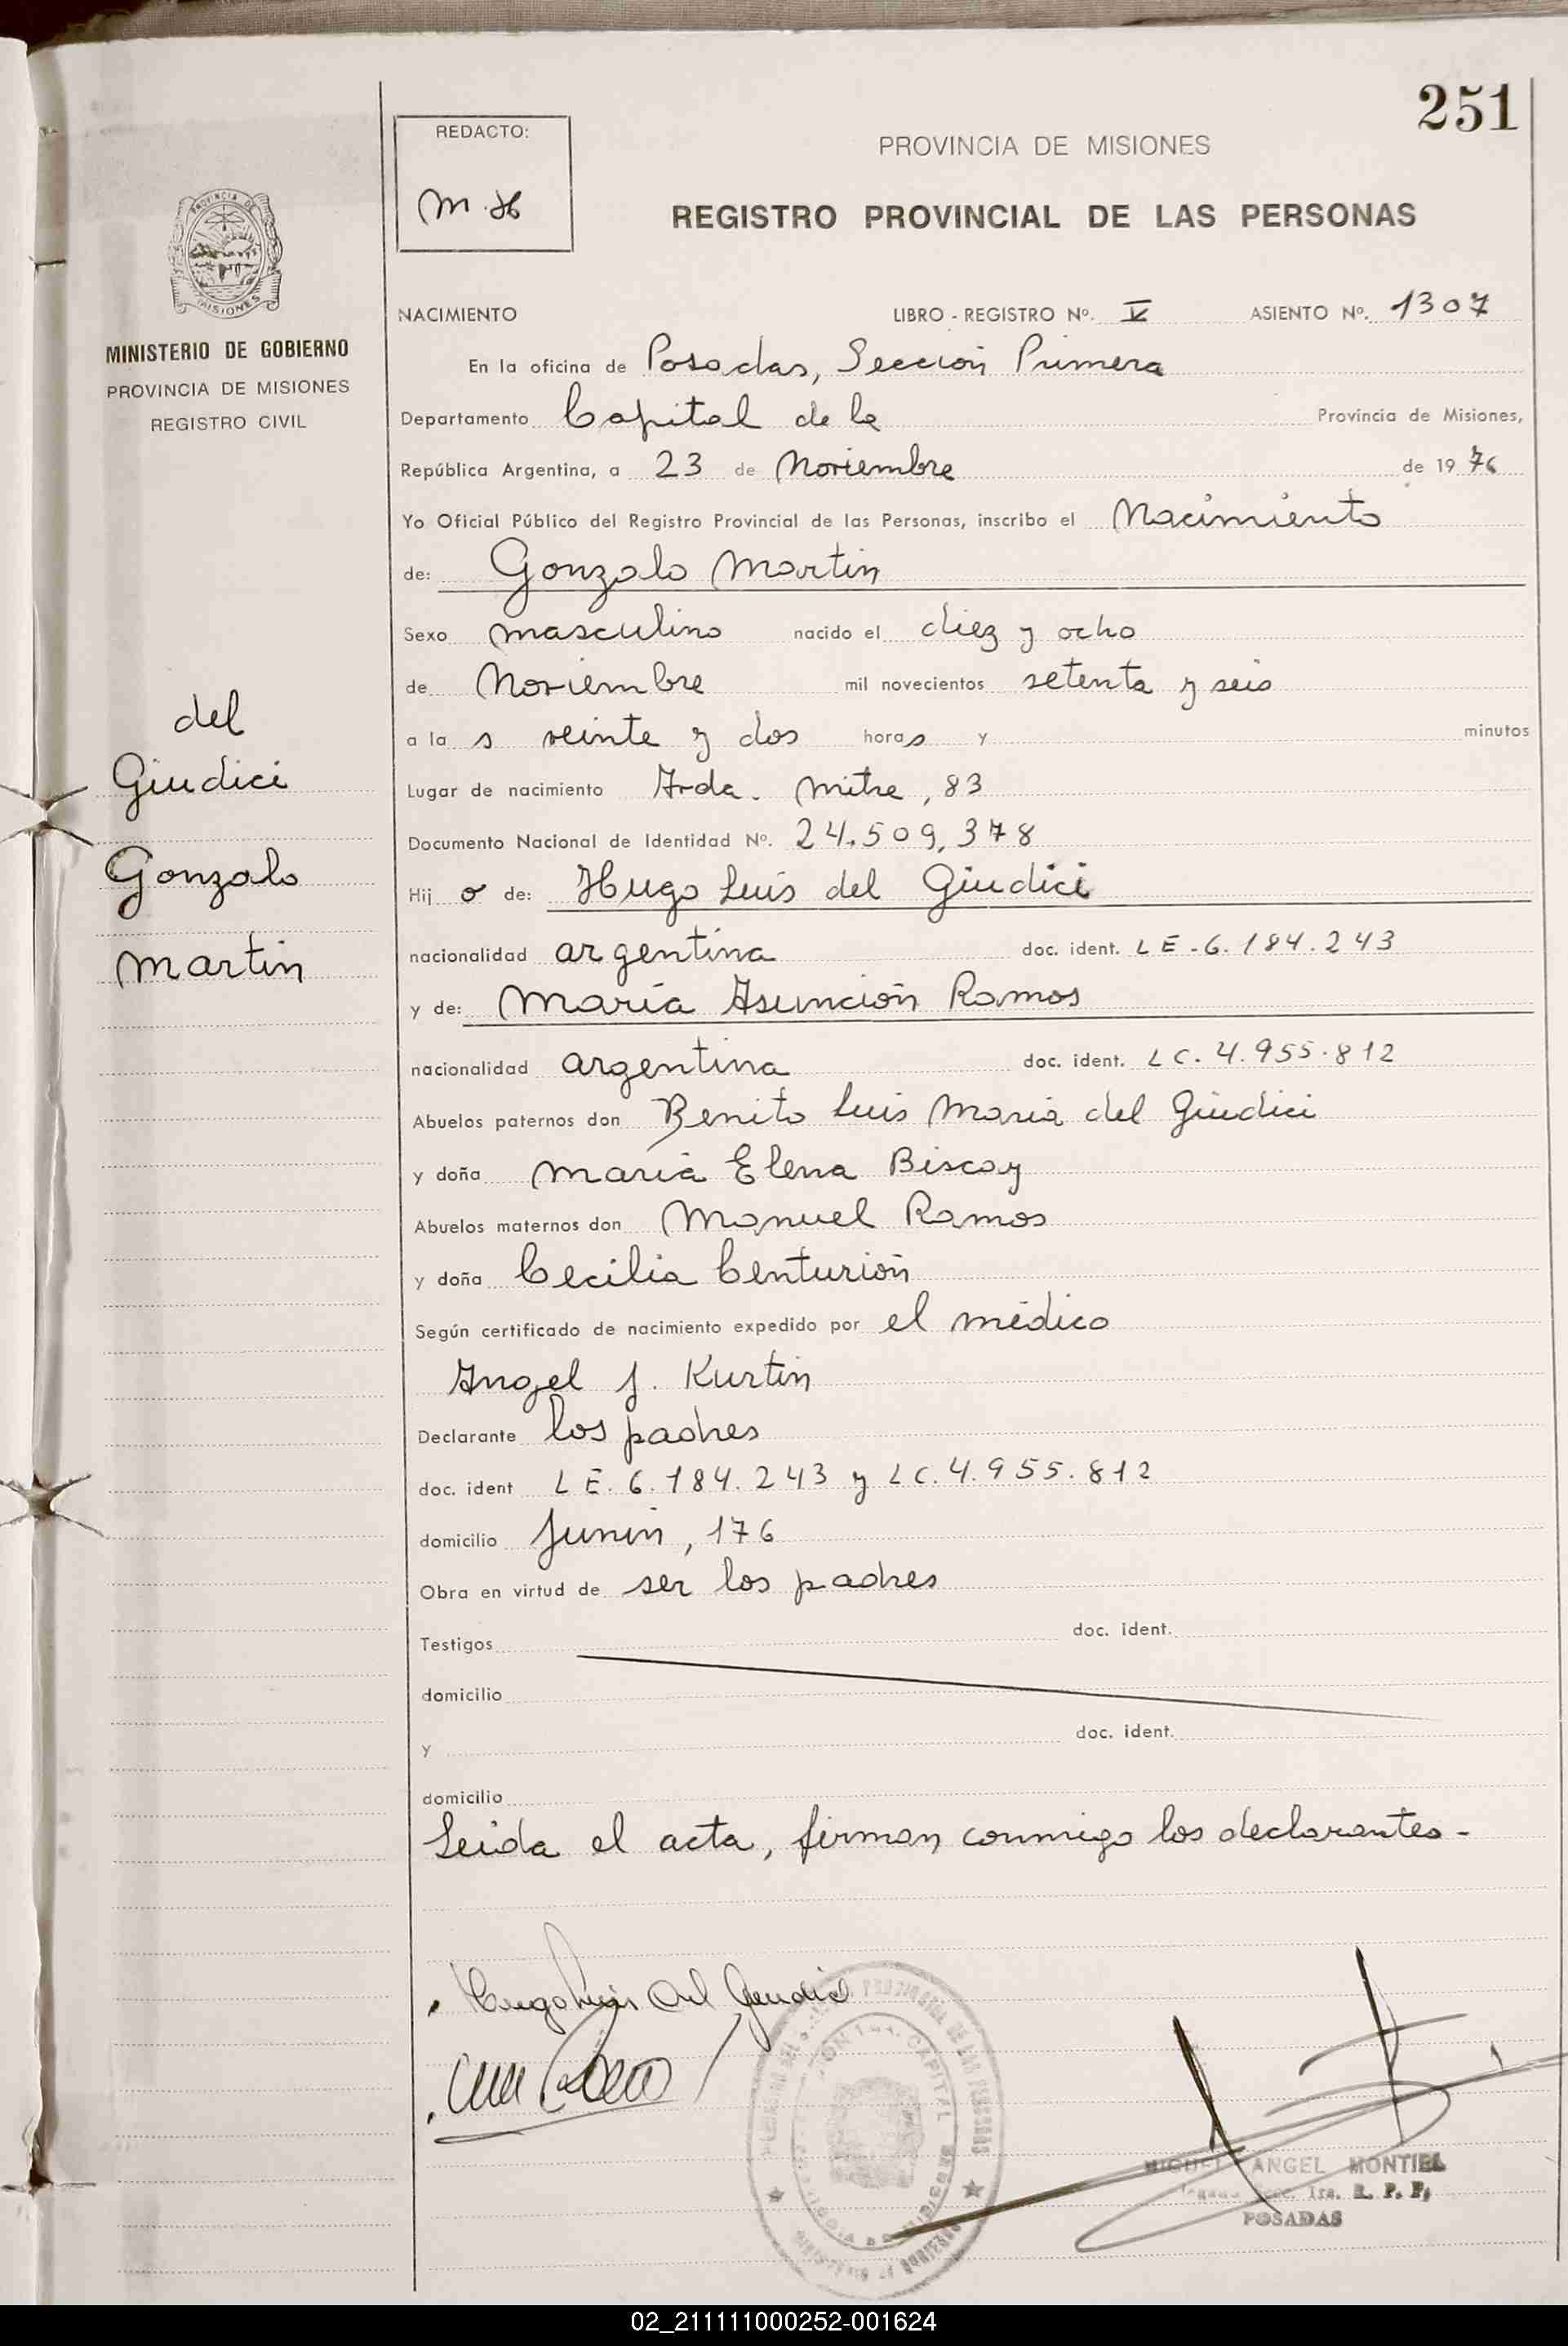 251
REDACTO:
M.H
PROVINCIA DE MISIONES
REGISTRO PROVINCIAL DE LAS PERSONAS
MINISTERIO DE GOBIERNO
PROVINCIA DE MISIONES
REGISTRO CIVIL
del
Giudici
Gonzalo
Martin
NACIMIENTO LIBRO - REGISTRO Nº. V ASIENTO Nº. 1307
En la oficina de Posadas, Sección Primera
Departamento Capital de la Provincia de Misiones,
República Argentina, a 23 de Noviembre de 1976
Yo Oficial Público del Registro Provincial de las Personas, inscribo el Nacimiento
de: Gonzalo Martín
Sexo masculino nacido el diez y ocho
de Noviembre mil novecientos setenta y seis
a la s veinte y dos horas y minutos
Lugar de nacimiento Avda. Mitre, 83
Documento Nacional de Identidad Nº. 24.509.378
Hij o de: Hugo Luis del Giudici
nacionalidad argentina doc. ident. LE-6.184.243
y de: María Asunción Ramos
nacionalidad argentina doc. ident. LC.4.955.812
Abuelos paternos don Benito Luis María del Giudici
y doña María Elena Biscay
Abuelos maternos don Manuel Ramos
y doña Cecilia Centurión
Según certificado de nacimiento expedido por el médico
Angel J. Kurtin
Declarante los padres
doc. ident LE.6.184.243 y LC.4.955.812
domicilio Junín, 176
Obra en virtud de ser los padres
Testigos doc. ident.
domicilio
y doc. ident.
domicilio
Leida el acta, firman conmigo los declarantes-
Hugo Luis del Giudici
MIGUEL ANGEL MONTIEL
Secc. 1ra. R. P. P.
POSADAS
02_211111000252-001624